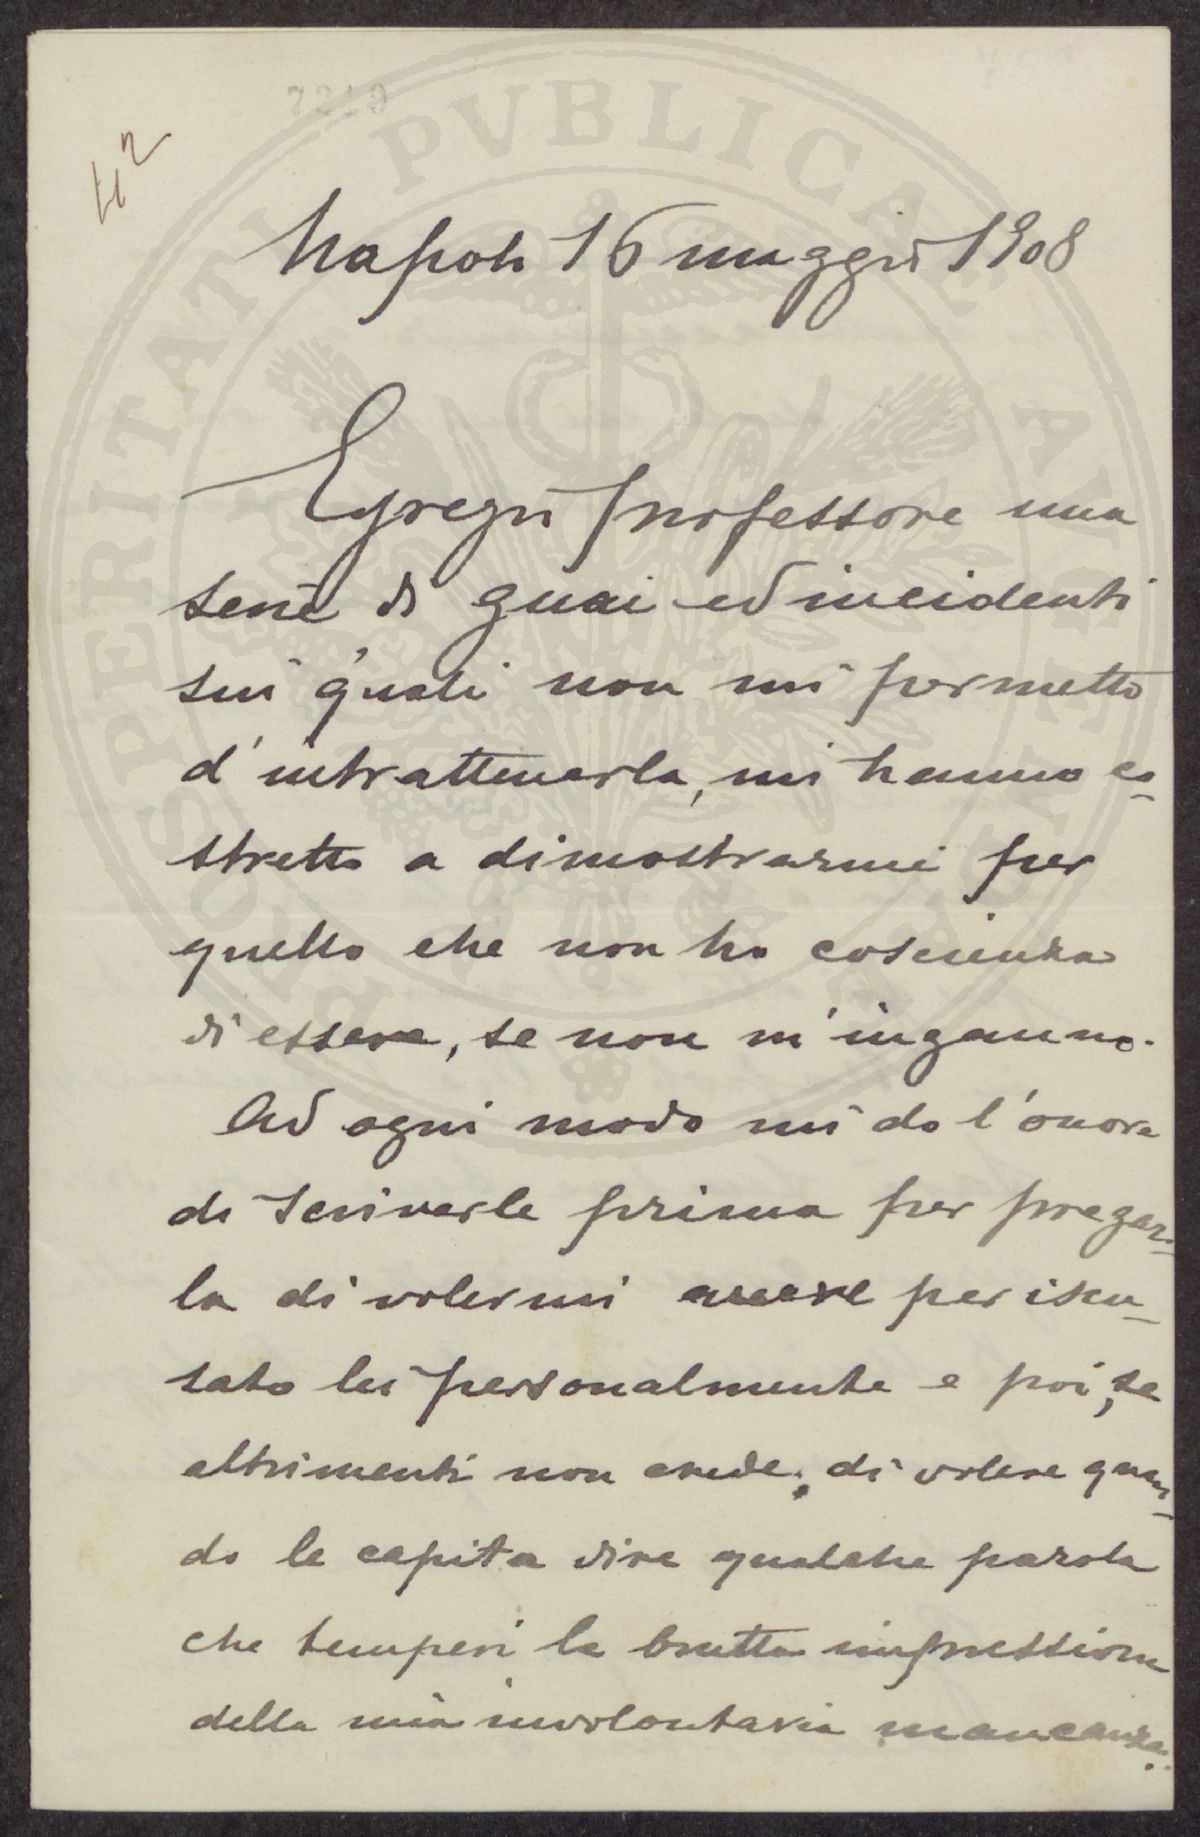 7219
42
Napoli 16 maggio 1908
Egregio professore una
serie di guai ed incidenti
sui quali non mi permetto
d'intrattenerla, mi hanno co-
stretto a dimostrarmi per
quello che non ho coscienza
di essere, se non m'inganno.
Ad ogni modo mi do l'onore
di scriverle prima per pregar-
la di volermi avere per iscu-
sato lei personalmente e poi, se
altrimenti non crede, di volere quan-
do le capita dire qualche parola
che temperi la brutta impressione
della mia involontaria mancanza.
PROSPERITATI PVBLICAE AVGENDAE